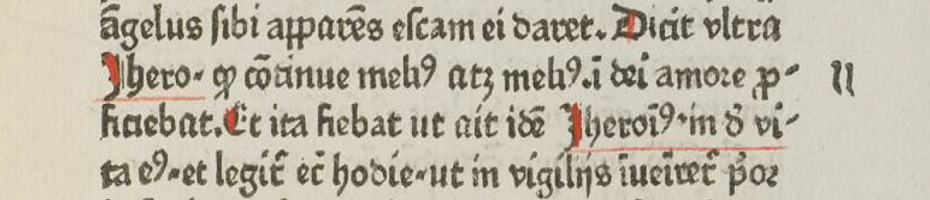 āgelus ſibi apparēs eſcam ei daret. Dicit vltra
Jhero. ꝙ cōtinue meliꝰ atꝫ meliꝰ.ī dei amore ꝓ- II
ficiebat. Et ita fiebat ut ait idē Jheroīꝰ.in d̄ vi-
ta eꝰ.et legit̄ et̄ hodie.ut in vigilijs īueīret̄ p̄or